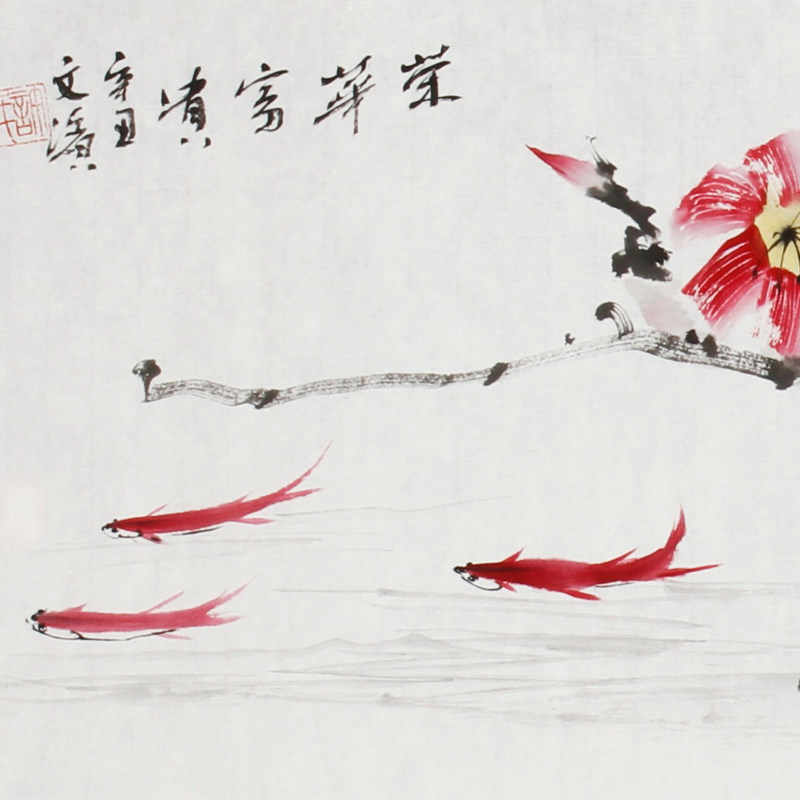 荣華富貴
辛丑
文濱